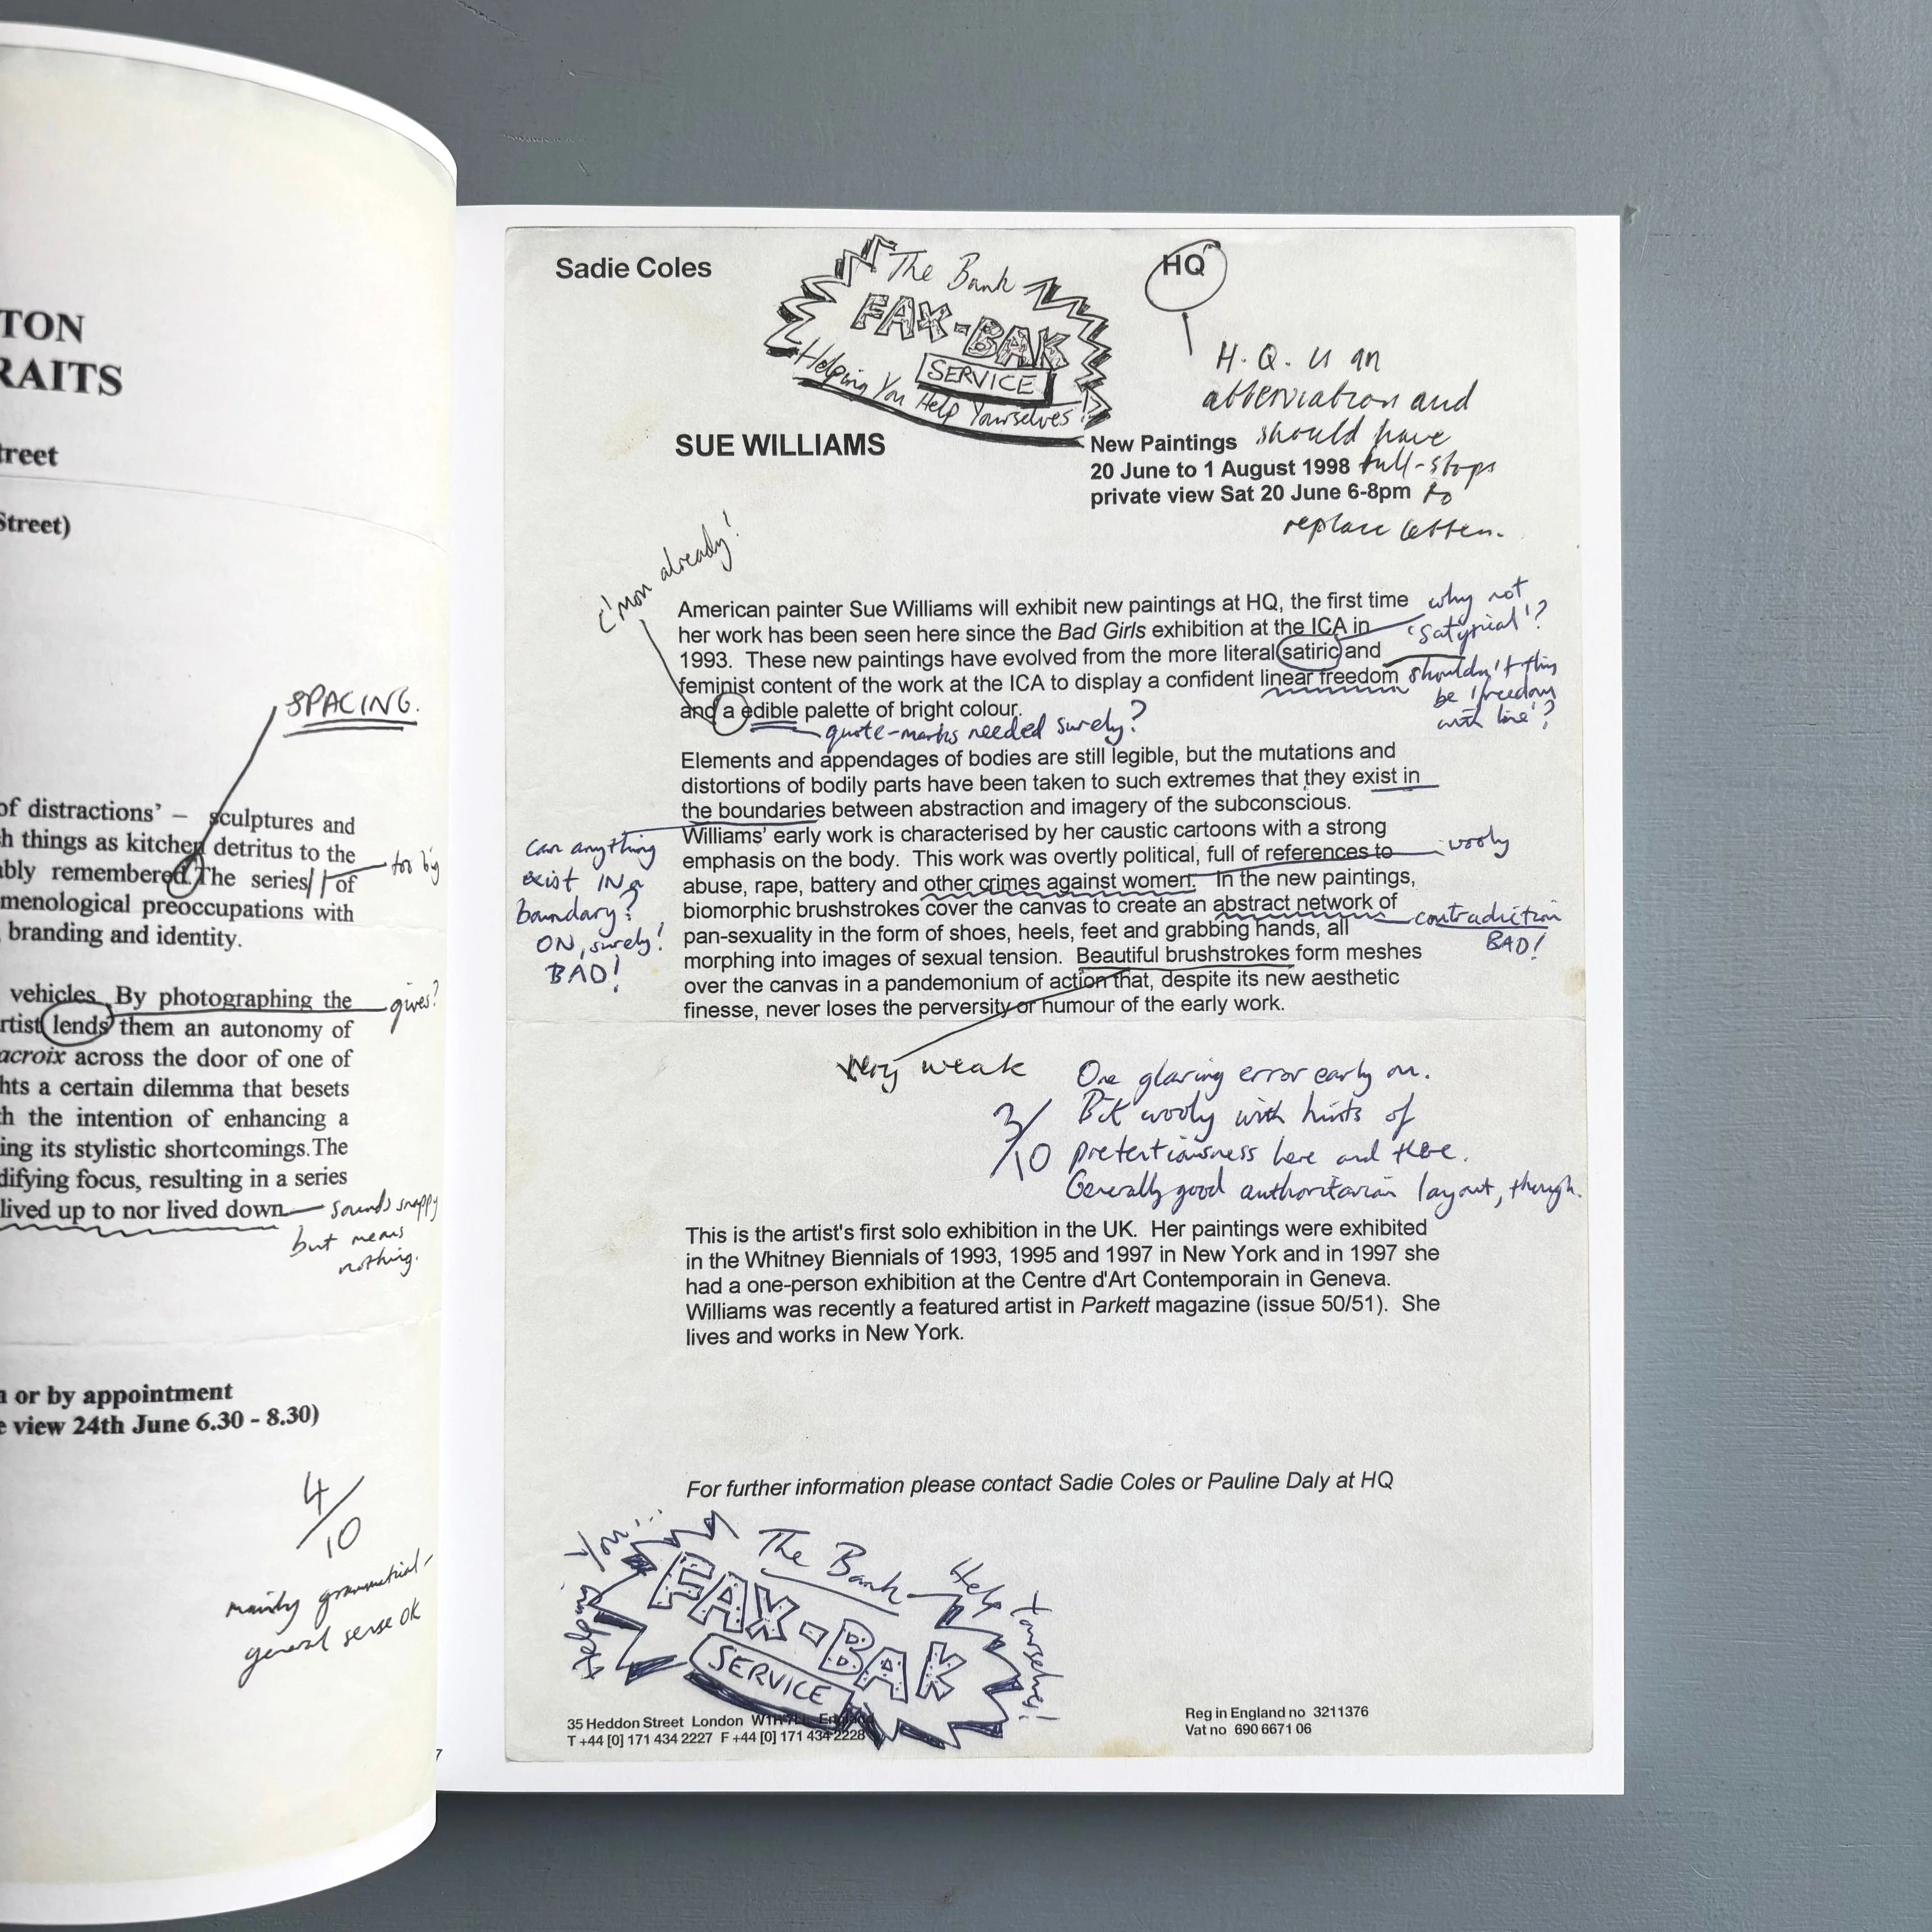 TON
RAITS
treet
Street)
SPACING.
of distractions’ – sculptures and
h things as kitchen detritus to the
bly remembered.The series of
too big
menological preoccupations with
branding and identity.
vehicles. By photographing the
gives?
rtist lends them an autonomy of
acroix across the door of one of
hts a certain dilemma that besets
h the intention of enhancing a
ing its stylistic shortcomings.The
difying focus, resulting in a series
lived up to nor lived down
sounds snappy
but means
nothing.
n or by appointment
e view 24th June 6.30 - 8.30)
4/10
mainly grammatical –
general sense OK
7
Sadie Coles
The Bank
FAX-BAK
SERVICE
Helping You Help Yourselves!
HQ
H.Q. is an
abberviation and
should have
full-stops
to
replace letters.
SUE WILLIAMS
New Paintings
20 June to 1 August 1998
private view Sat 20 June 6-8pm
C'mon already!
American painter Sue Williams will exhibit new paintings at HQ, the first time
her work has been seen here since the Bad Girls exhibition at the ICA in
1993. These new paintings have evolved from the more literal satiric and
feminist content of the work at the ICA to display a confident linear freedom
and a edible palette of bright colour.
why not
'satyrical'?
shouldn't this
be 'freedom
with line'?
quote-marks needed surely?
Elements and appendages of bodies are still legible, but the mutations and
distortions of bodily parts have been taken to such extremes that they exist in
the boundaries between abstraction and imagery of the subconscious.
Williams' early work is characterised by her caustic cartoons with a strong
emphasis on the body. This work was overtly political, full of references to
abuse, rape, battery and other crimes against women. In the new paintings,
biomorphic brushstrokes cover the canvas to create an abstract network of
pan-sexuality in the form of shoes, heels, feet and grabbing hands, all
morphing into images of sexual tension. Beautiful brushstrokes form meshes
over the canvas in a pandemonium of action that, despite its new aesthetic
finesse, never loses the perversity or humour of the early work.
can anything
exist IN a
boundary?
ON, surely!
BAD!
wooly
contradiction
BAD!
Very weak
3/10
One glaring error early on.
Bit wooly with hints of
pretentiousness here and there.
Generally good authoritarian layout, though.
This is the artist's first solo exhibition in the UK. Her paintings were exhibited
in the Whitney Biennials of 1993, 1995 and 1997 in New York and in 1997 she
had a one-person exhibition at the Centre d'Art Contemporain in Geneva.
Williams was recently a featured artist in Parkett magazine (issue 50/51). She
lives and works in New York.
For further information please contact Sadie Coles or Pauline Daly at HQ
The Bank
FAX-BAK
SERVICE
Helping You... Help Yourselves!
35 Heddon Street London W1R 7LL England
T +44 [0] 171 434 2227 F +44 [0] 171 434 2228
Reg in England no 3211376
Vat no 690 6671 06